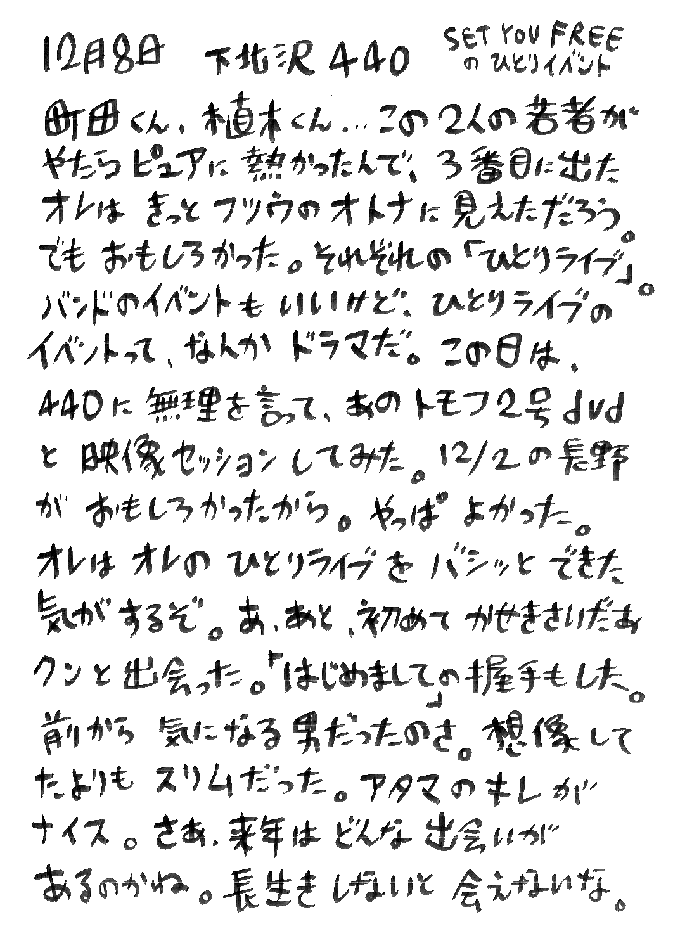 12月8日 下北沢440 SET YOU FREE
のひとりイベント
町田くん、植木くん…この2人の若者が
やたらピュアに熱かったんで、3番目に出た
オレはきっとフツウのオトナに見えただろう。
でもおもしろかった。それぞれの「ひとりライブ」。
バンドのイベントもいいけど、ひとりライブの
イベントって、なんかドラマだ。この日は、
440に無理を言って、あのトモフ2号dvd
と映像セッションしてみた。12/2の長野
がおもしろかったから。やっぱよかった。
オレはオレのひとりライブをバシッとできた
気がするぞ。あ、あと、初めてかせきさいだぁ
クンと出会った。「はじめまして」の握手もした。
前から気になる男だったのさ。想像して
たよりもスリムだった。アタマのキレが
ナイス。さあ、来年はどんな出会いが
あるのかね。長生きしないと会えないな。